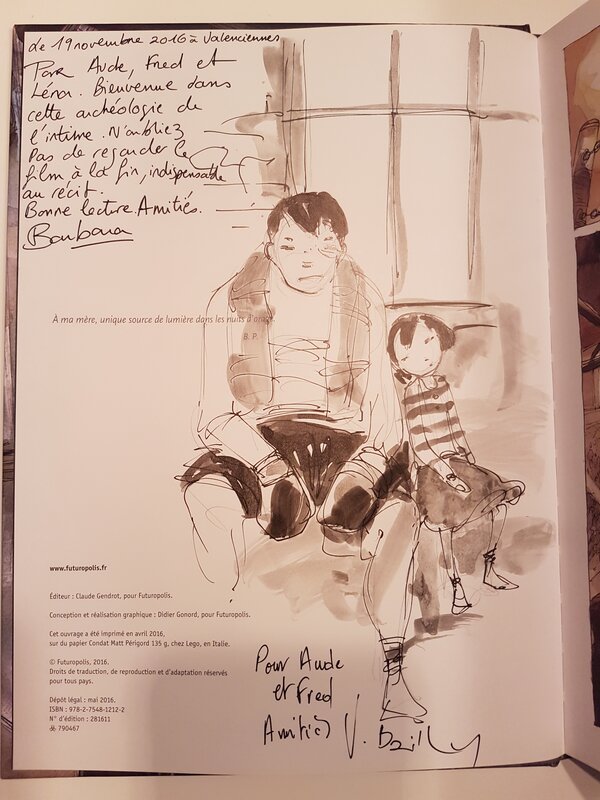 Le 19 novembre 2016 à Valenciennes
Pour Aude, Fred et
Léna. Bienvenue dans
cette archéologie de
l'intime. N'oubliez
Pas de regarder le
film à la fin, indispensable
au récit.
Bonne lecture. Amitiés.
Barbara
À ma mère, unique source de lumière dans les nuits d'orage.
B. P.
www.futuropolis.fr
Éditeur : Claude Gendrot, pour Futuropolis.
Conception et réalisation graphique : Didier Gonord, pour Futuropolis.
Cet ouvrage a été imprimé en avril 2016,
sur du papier Condat Matt Périgord 135 g, chez Lego, en Italie.
© Futuropolis, 2016.
Droits de traduction, de reproduction et d'adaptation réservés
pour tous pays.
Dépôt légal : mai 2016.
ISBN : 978-2-7548-1212-2
N° d'édition : 281611
790467
Pour Aude
et Fred
Amitiés V. Bailly